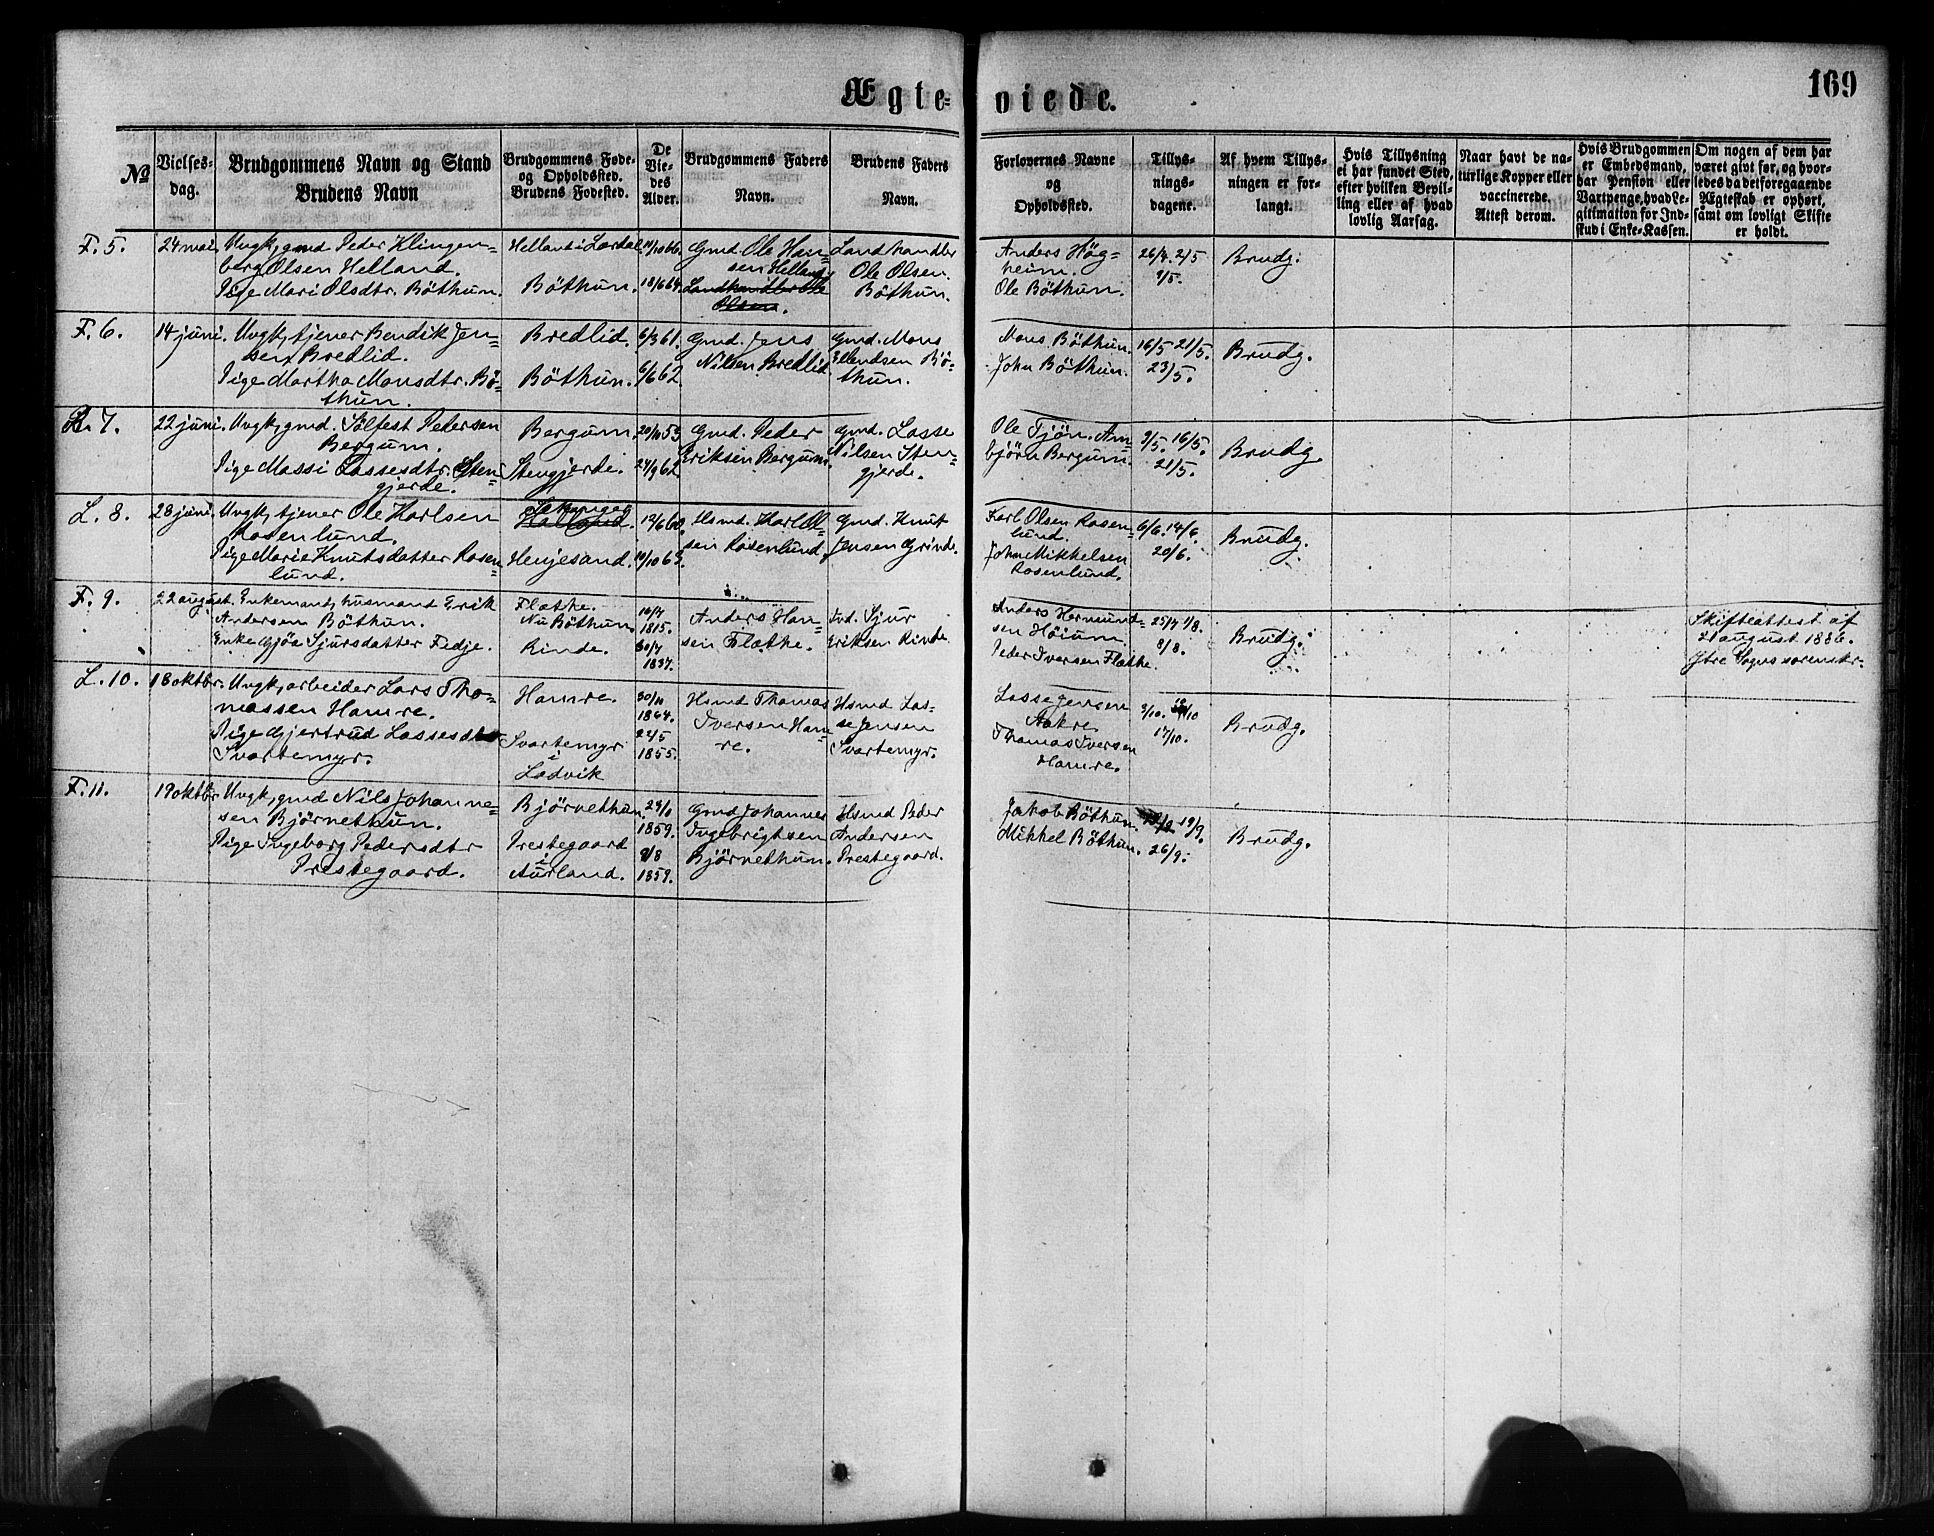 Ægte-viede.
169
№
Vielses-
dag.
Brudgommens Navn og Stand
Brudens Navn
Brudgommens Føde-
og Opholdssted.
Brudens Fødested.
De
Vie-
des
Alder.
Brudgommens Faders
Navn.
Brudens Faders
Navn.
Forlovernes Navne
og
Opholdssted.
Tillys-
nings-
dagene.
Af hvem Tillys-
ningen er for-
langt.
Hvis Tillysning
ei har fundet Sted,
efter hvilken Bevil-
ling eller af hvad
lovlig Aarsag.
Naar havt de na-
turlige Kopper eller
vaccinerede.
Attest derom.
Hvis Brudgommen
er Embedsmand,
har Pension eller
Vartpenge, hvad Le-
gitimation for Ind-
skud i Enke-Kassen.
Om nogen af dem har
været givt før, og hvor-
ledes da det foregaaende
Ægteskab er ophørt,
samt om lovligt Skifte
er holdt.
F. 5.
24 mai.
Ungk, gmd Peder Klingen-
berg Olsen Helland.
Pige Mari Olsdtr. Böthun.
Helland i Lærdal
Böthun.
11/10 66.
18/6 64.
Gmd. Ole Han-
sen Helland
Landhandler Ole
Olsen.
Landhandler
Ole Olsen.
Böthun.
Anders Hög-
heim.
Ole Böthun.
26/4. 2/5
9/5.
Brudg.
F. 6.
14 juni.
Ungk, tjener Bendik Jen-
sen Bredlid.
Pige Martha Monsdtr. Bö-
thun.
Bredlid.
Böthun.
6/3 61.
6/6 62.
Gmd. Jens
Nilsen Bredlid
Gmd. Mons
Ellendsen Bö-
thun.
Mons Böthun.
John Böthun.
16/5 21/5.
23/5.
Brudg.
L. 7.
22 juni.
Ungk, gmd. Sölfest Pedersen
Bergum.
Pige Massi Lassesdtr. Sten-
gjerde.
Bergum.
Stengjerde.
20/10 53
24/9 62.
Gmd. Peder
Eriksen Bergum.
Gmd. Lasse
Nilsen Sten-
gjerde.
Ole Tjön. Am-
björn Bergum.
9/5. 16/5.
21/5.
Brudg.
L. 8.
28 juni.
Ungk, tjener Ole Karlsen
Rosenlund.
Pige Marie Knutsdatter Rosen-
lund.
Henjesand.
19/6 60.
11/10 63.
Hsmd. Karl Ol-
sen Rosenlund.
Gmd. Knut
Jensen Grinde.
Karl Olsen Rosen-
lund.
John Mikkelsen
Rosenlund.
6/6. 14/6.
20/6.
Brudg.
F. 9.
22 august.
Enkemand, husmand Erik
Andersen Böthun.
Enke Gjöa Sjursdatter Fedje.
Flæthe.
Nu Böthun.
Rinde.
10/7
1815.
30/7
1837.
Anders Han-
sen Flæthe.
Ind. Sjur
Eriksen Rinde.
Anders Hermund-
sen Höium.
Peder Iversen Flæthe.
25/7 1/8.
8/8.
Brudg.
Skifteattest af
21 august 1886.
Ytre Sogns sorenskr.
L. 10.
18 oktbr.
Ungk, arbeider Lars Tho-
massen Hamre.
Pige Gjertrud Lassesdtr
Svartemyr.
Hamre.
Svartemyr
i
Ladvik
30/11
1864.
24/5
1855.
Hsmd Thomas
Iversen Ham-
re.
Hsmd Las-
se Jensen
Svartemyr.
Lasse Jensen
Aakre
Thomas Iversen
Hamre.
3/10. 10/10
17/10.
Brudg.
F. 11.
19 oktbr
Ungk, gmd Nils Johanne-
sen Björnethun.
Pige Ingeborg Pedersdtr
Prestegaard.
Björnethun.
Prestegaard
i
Aurland.
1859.
9/8
1859.
Gmd Johannes
Ingebrigtsen
Björnethun.
Hsmd Peder
Andersen
Prestegaard.
Jakob Böthun.
Mikkel Böthun.
19/9.
26/9.
Brudg.